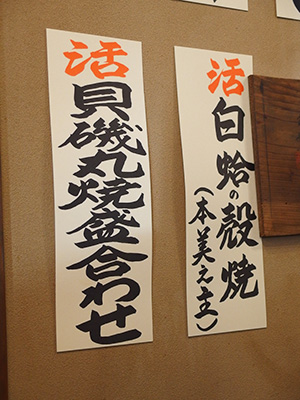 活白蛤の殻焼
(本美之主)
活貝磯丸焼盛合わせ